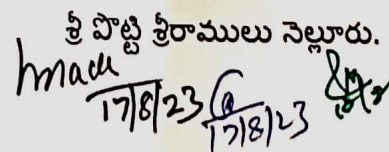 శ్రీ పొట్టి శ్రీరాములు నెల్లూరు.
17/8/23 17/8/23